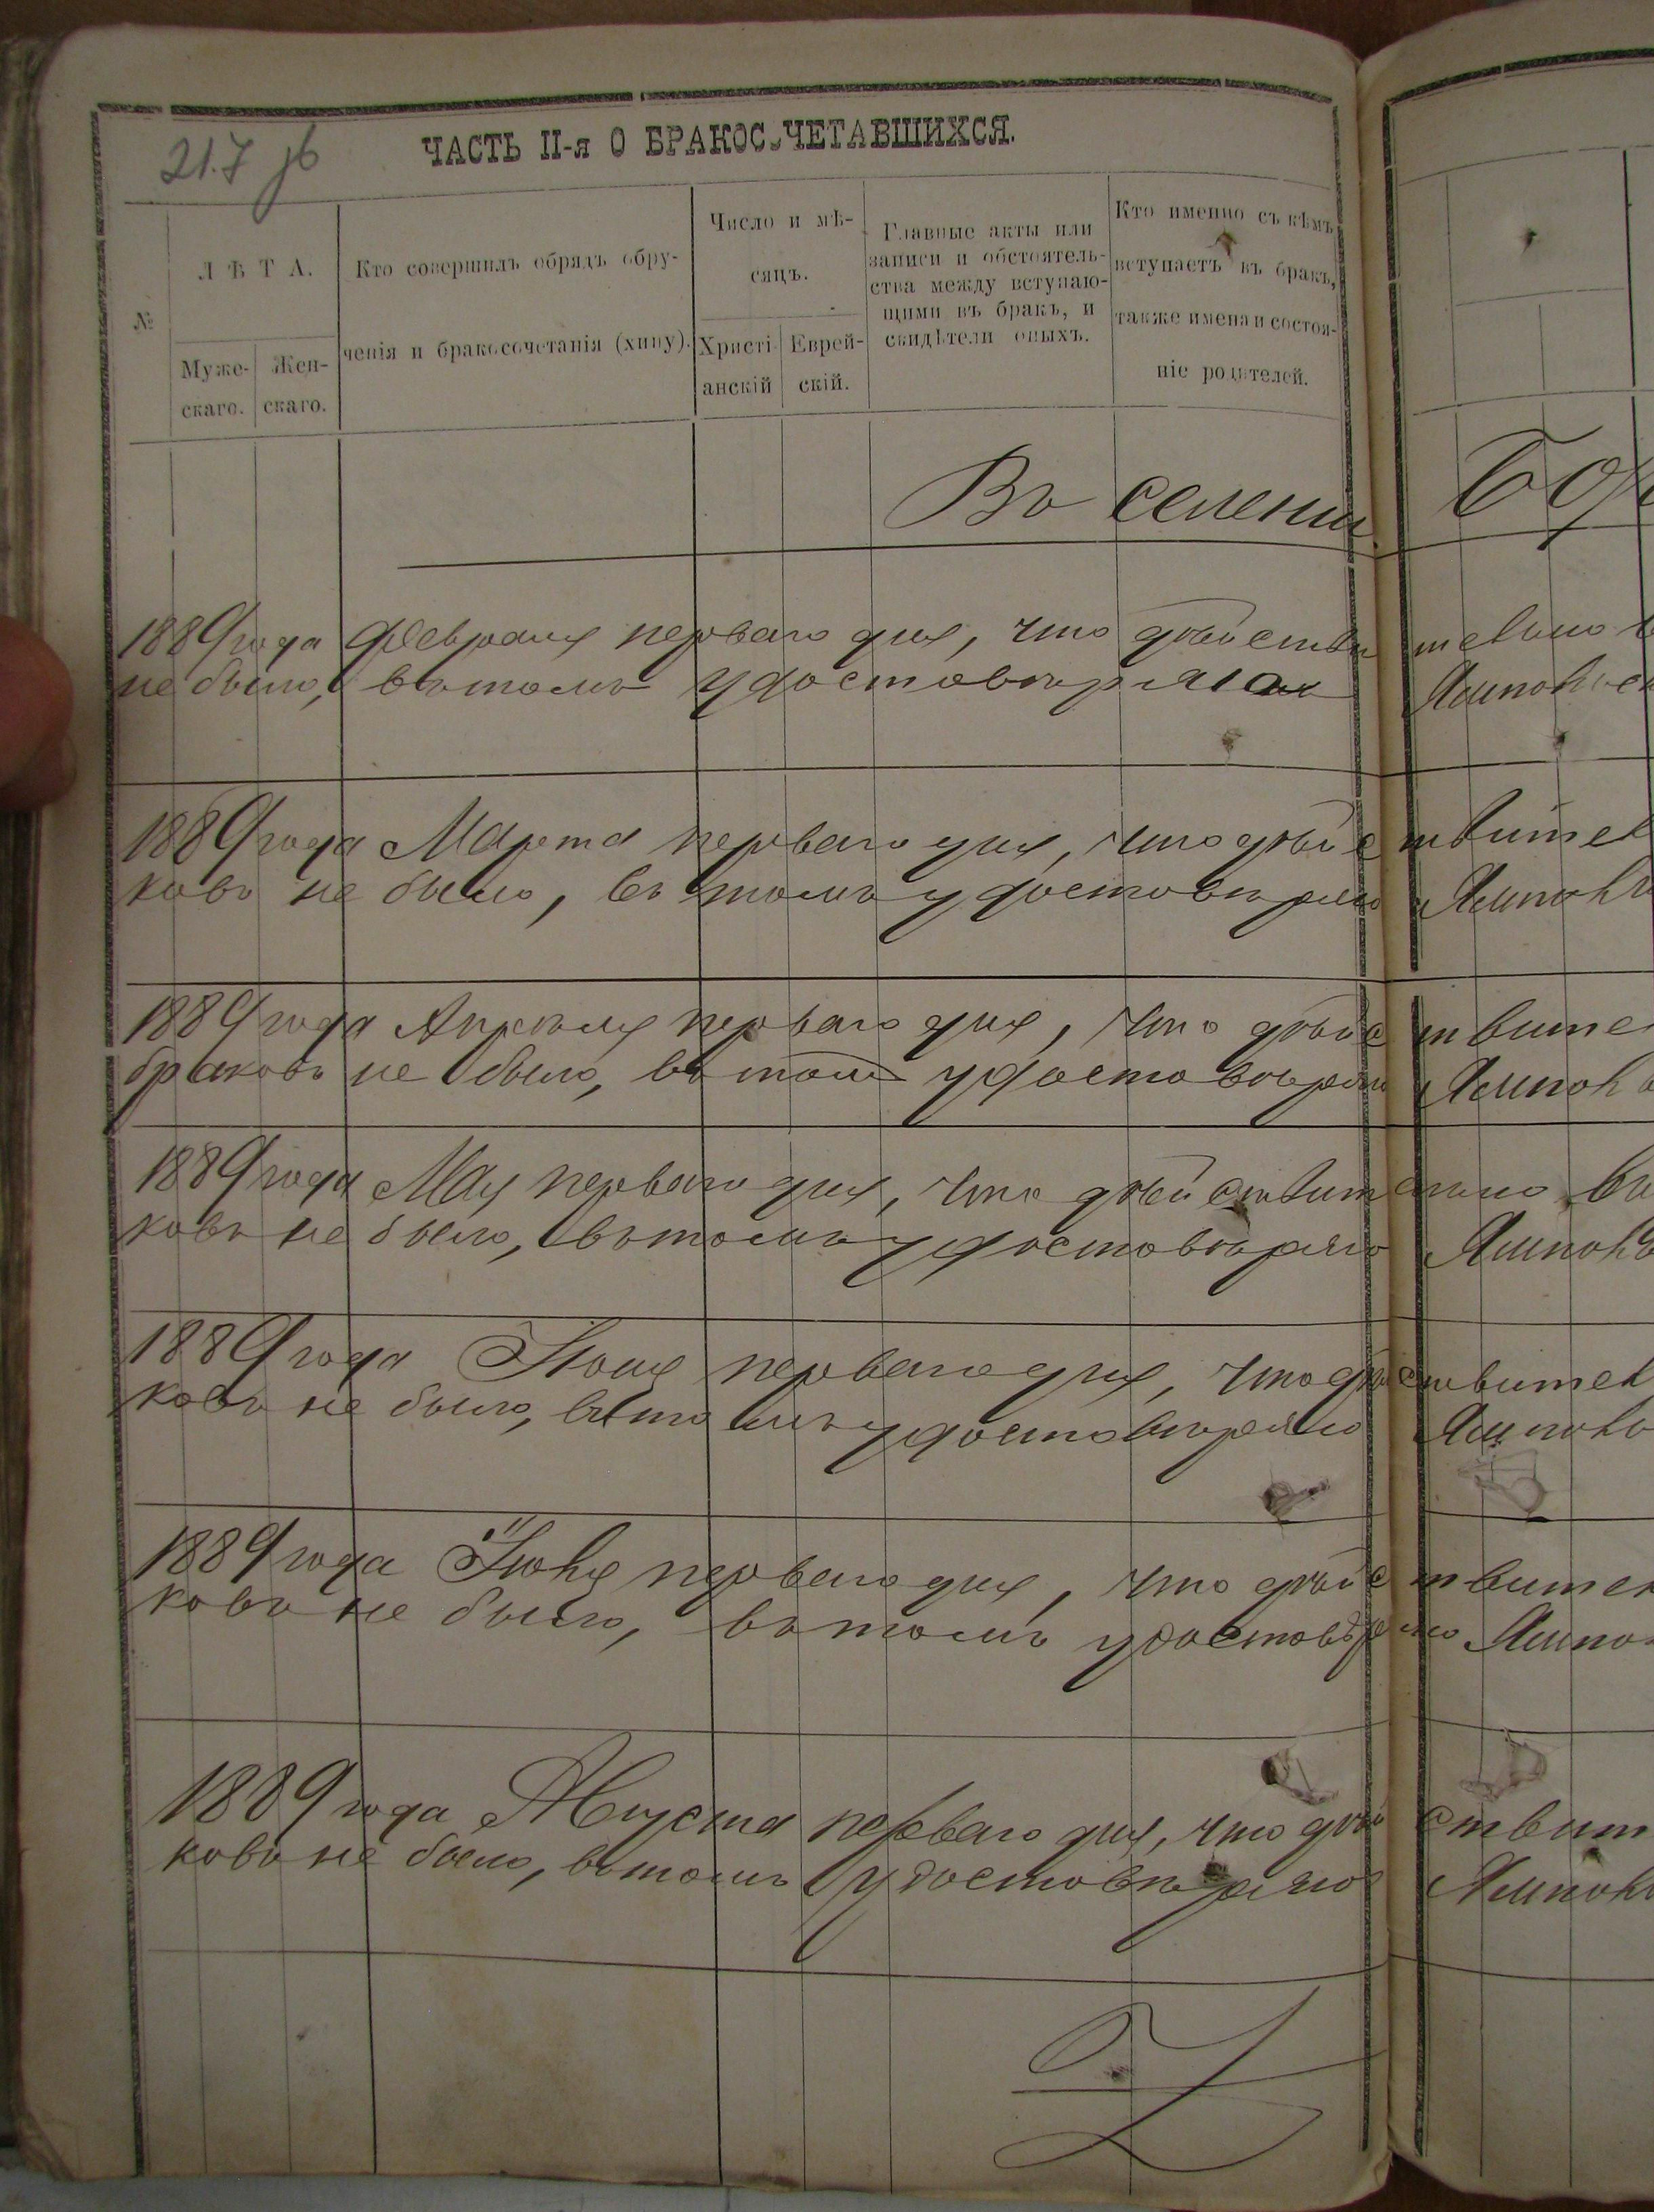 21.7 об
ЧАСТЬ II-я О БРАКОСОЧЕТАВШИХСЯ.
№
ЛѢТА.
Муже-
скаго.
Жен-
скаго.
Кто совершилъ обрядъ обру-
ченія и бракосочетанія (хипу).
Число и мѣ-
сяцъ.
Христі-
анскій
Еврей-
скій.
Главные акты или
записи и обстоятель-
ства между вступаю-
щими въ бракъ, и
свидѣтели оныхъ.
Кто именно съ кѣмъ
вступаетъ въ бракъ,
также имена и состоя-
ніе родителей.
Въ селении
1889 года Февраля перваго дня, что дѣйствительно
не было, въ томъ удостовѣряю
1889 года Марта перваго дня, что дѣйствител
ковъ не было, въ томъ удостовѣряю
1889 года Апрѣля перваго дня, что дѣйствител
браковъ не было, въ томъ удостовѣряю
1889 года Мая перваго дня, что дѣйствительно
ковъ не было, въ томъ удостовѣряю
1889 года Іюня перваго дня, что дѣйствител
ковъ не было, въ томъ удостовѣряю
1889 года Іюля перваго дня, что дѣйствител
ковъ не было, въ томъ удостовѣряю
1889 года Августа перваго дня, что дѣйствит
ковъ не было, въ томъ удостовѣряю